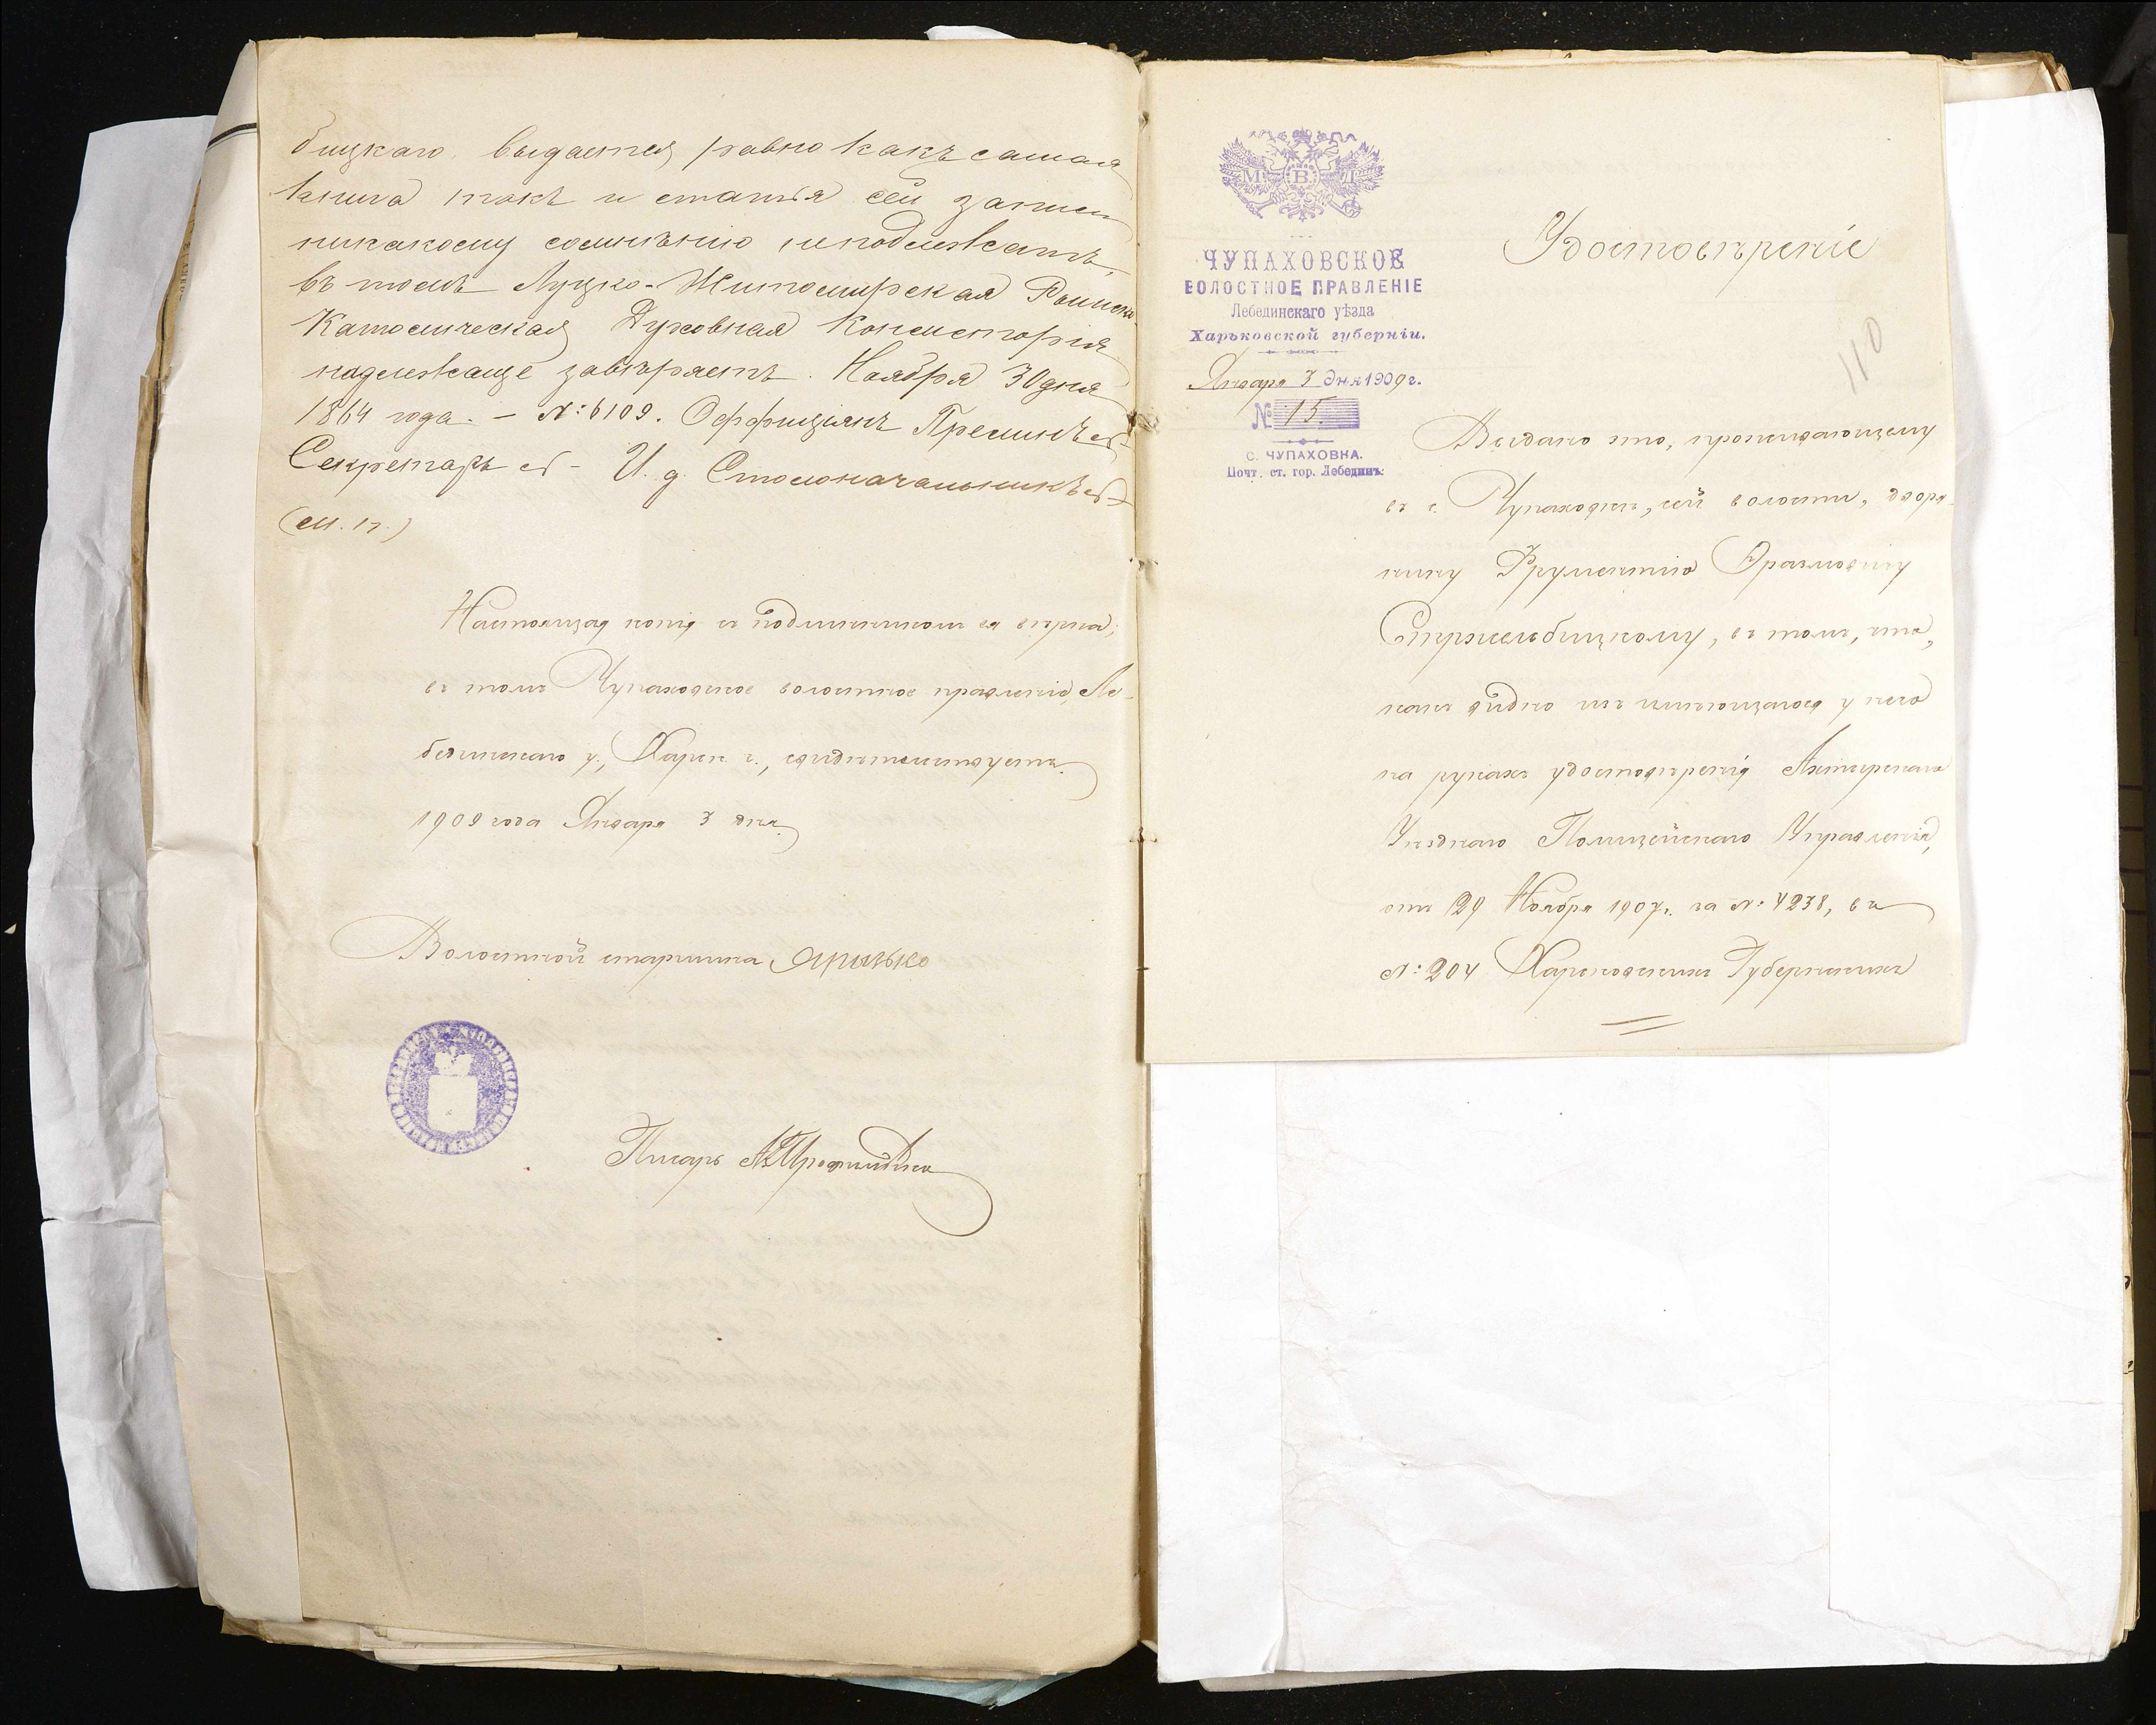 бицкаго выдается, равно какъ самая
книга такъ и статья сей записи
никакому сомнѣнію неподлежатъ,
въ томъ Луцко-Житомирская Римско-
Католическая Духовная Консисторія
надлежаще завѣряетъ. Ноября 30 дня
1864 года. – №: 6109. Оффиціалъ
Секретарь – И. д. Столоначальникъ
(м. п.)
Настоящая копія съ подлинникомъ ея вѣрна;
въ томъ Чупаховское волостное правленіе, Ле-
бединскаго у., Харьк. г., свидѣтельствуетъ.
1909 года Января 3 дня.
Волостной старшина
Писарь
ЧУПАХОВСКОЕ
ВОЛОСТНОЕ ПРАВЛЕНІЕ
Лебединскаго уѣзда
Харьковской губерніи.
Января 3 дня 1909 г.
№ 15.
С. ЧУПАХОВКА.
Почт. ст. гор. Лебединъ.
Удостовѣреніе
110
Выдано это, проживающему
въ с. Чупаховкѣ, сей волости, дворя-
нину Фрументію Ѳракловичу
Стржельбицкому, въ томъ, что,
какъ видно изъ имѣющагося у него
на рукахъ удостовѣренія Ахтырскаго
Уѣзднаго Полицейскаго Управленія,
отъ 29 Ноября 1907 г. за №: 4238, въ
№: 204 Харьковскихъ Губернскихъ